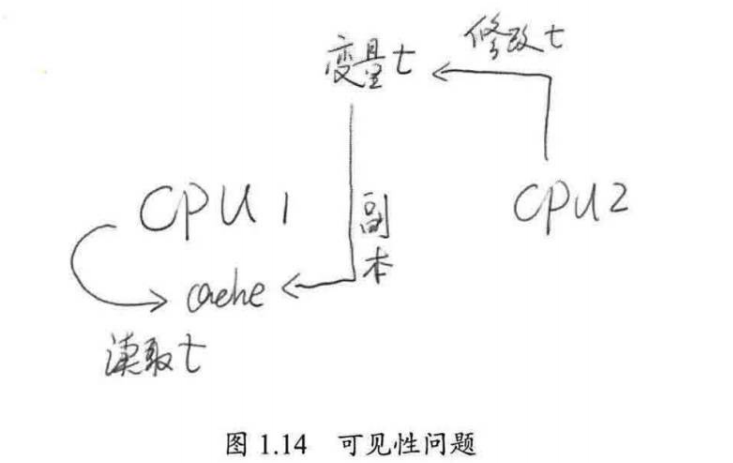 修改t
变量t
CPU1
CPU2
副本
cache
读取t
图 1.14 可见性问题